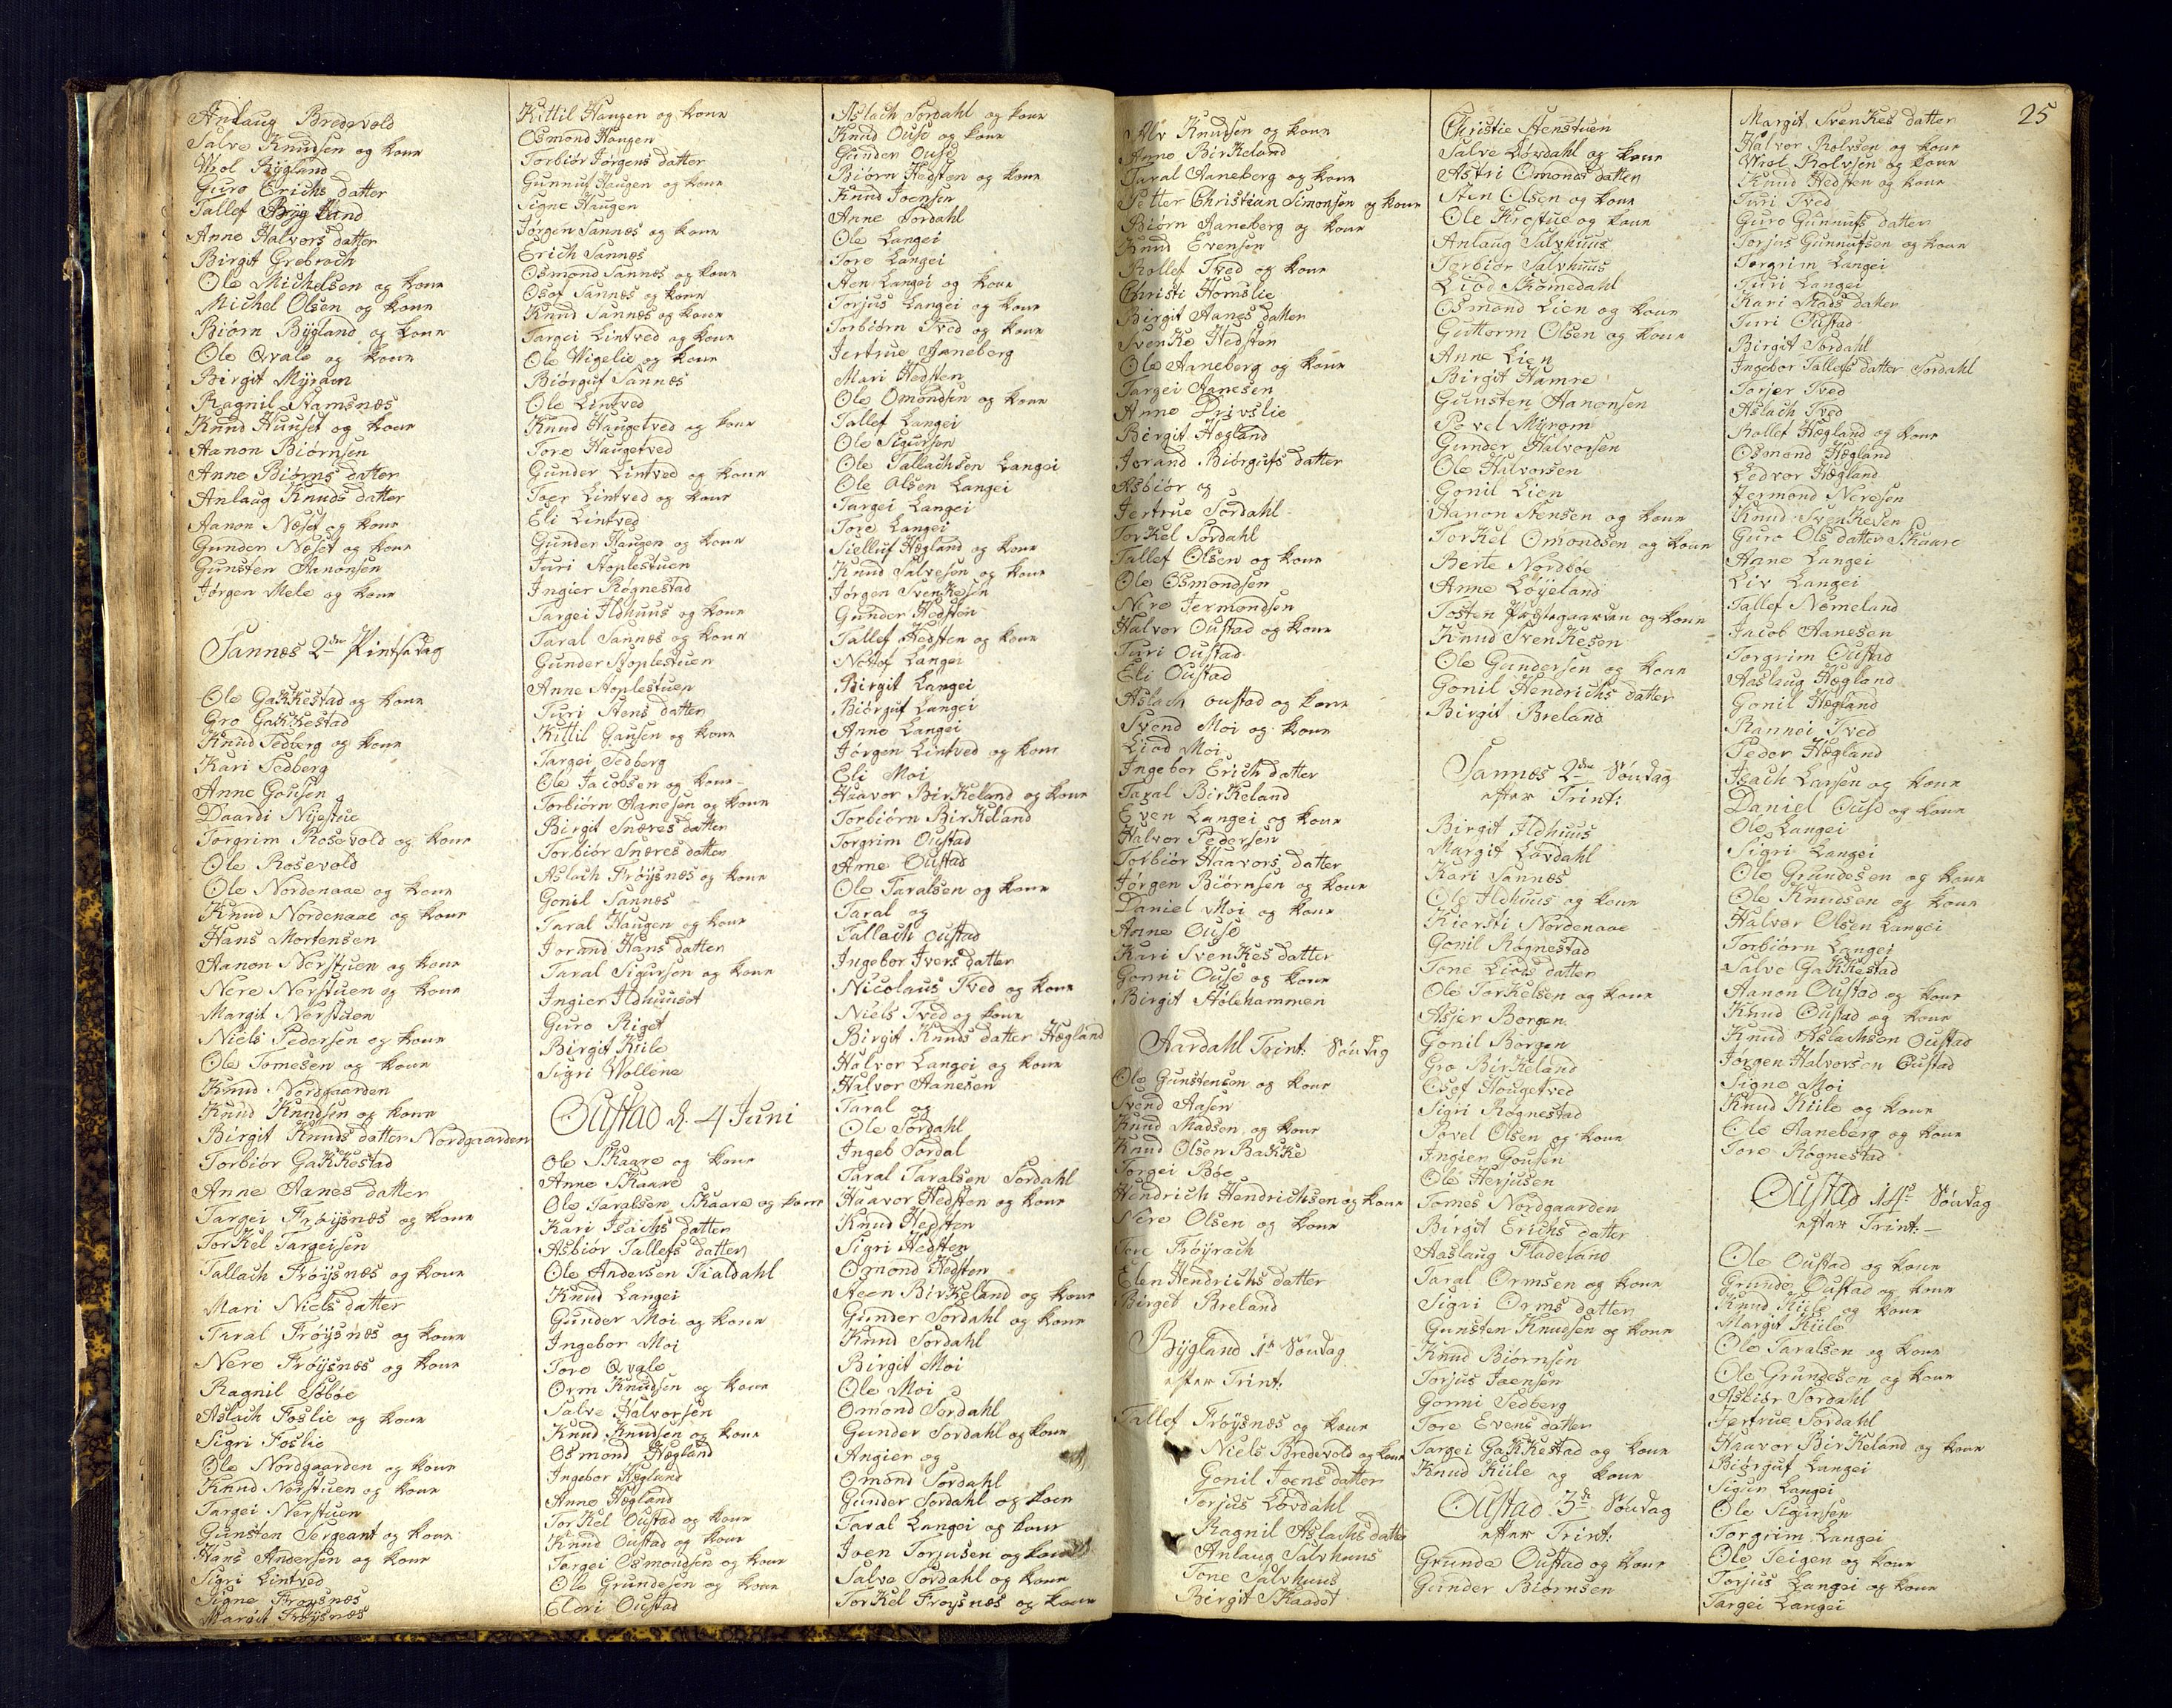 Anlaug Bredevold
Salve Knudsen og kone
Wiol Bygland
Guro Erichs datter
Tallef Bygland
Anne Halvors datter
Birgit Grebroch
Ole Michelsen og kone
Michel Olsen og kone
Biørn Bygland og kone
Ole Qvale og kone
Birgit Myraen
Ragnil Stamsnæs
Knud Huuset og kone
Aanon Biørnsen
Anne Biørns datter
Anlaug Knuds datter
Aanon Næset og kone
Gunder Næset og kone
Gunsten Aanonsen
Jørgen Mele og kone
Sannes 2den Pintsedag
Ole Gakkestad og kone
Gro Gakkestad
Knud Sedberg og kone
Kari Sedberg
Anne Gousen
Daardi Nijestue
Torgrim Rosevold og kone
Ole Rosevold
Ole Nordenaae og kone
Knud Nordenaae og kone
Hans Mortensen
Aanon Nerstuen og kone
Nere Nerstuen og kone
Margit Nerstuen
Niels Pedersen og kone
Ole Tomesen og kone
Knud Nordgaarden
Knud Knudsen og kone
Birgit Knuds datter Nordgaarden
Torbiør Gakkestad
Anne Aanes datter
Targei Frøysnæs og kone
Torkel Targeisen
Tallach Frøysnæs og kone
Mari Niels datter
Taral Frøysnæs og kone
Nere Frøysnæs og kone
Ragnil Støbøe
Aslach Foslie og kone
Sigri Foslie
Ole Nordgaarden og kone
Knud Nerstuen og kone
Targei Nerstuen
Gunsten Sergeant og kone
Hans Andersen og kone
Sigri Lintved
Signe Frøysnæs
Margit Frøysnæs
Kittil Haugen og kone
Osmond Haugen
Torbiør Jørgens datter
Gunnuf Haugen og kone
Signe Haugen
Jørgen Sannes og kone
Erich Sannes
Osmond Sannæs og kone
Osof Sannæs og kone
Knud Sannæs og kone
Targei Lintved og kone
Ole Wigelie og kone
Biørguf Sannæs
Ole Lintved
Knud Haugetved og kone
Tore Haugetved
Gunder Lintved og kone
Toer Lintved og kone
Eli Lintved
Gunder Haugen og kone
Turi Stoplestuen
Ingier Røgnestad
Targei Ildhuus og kone
Taral Sannæs og kone
Gunder Stoplestuen
Anne Stoplestuen
Turi Stens datter
Kittil Gausen og kone
Targei Sedberg
Ole Jacobsen og kone
Torbiørn Aanesen og kone
Birgit Snæres datter
Torbiør Snæres datter
Aslach Frøysnæs og kone
Gonil Sannæs
Taral Haugen og kone
Jorand Hans datter
Taral Sigursen og kone
Ingier Ildhuuset
Guro Riget
Birgit Kiile
Sigri Wollene
Oustad d. 4 Juni
Ole Skaare og kone
Anne Skaare
Ole Taralsen Skaare og kone
Kari Isachs datter
Asbiør Tallefs datter
Ole Andersen Tialdahl
Knud Langei
Gunder Moi og kone
Ingebor Moi
Tore Qvale
Orm Knudsen og kone
Salve Halvorsen
Knud Knudsen og kone
Osmond Hægland
Ingebor Hægland
Anne Hægland
Torkel Oustad og kone
Knud Oustad og kone
Targei Osmondsen og kone
Ole Grundesen og kone
Eldri Oustad
Aslach Sordahl og kone
Knud Ouse og kone
Gunder Ouse
Biørn Hedsten og kone
Knud Joensen
Anne Sordahl
Ole Langei
Tore Langei
Sten Langei og kone
Torjus Langei og kone
Torbiørn Tved og kone
Jertrue Aaneberg
Mari Hedsten
Ole Omondsen og kone
Tallef Langei
Ole Sigursen
Ole Tallachsen Langei
Ole Olsen Langei
Targei Langei
Tore Langei
Siølluf Hægland og kone
Knud Salvesen og kone
Jørgen Svenkesen
Gunder Hedsten
Tallef Hedsten og kone
Nottof Langei
Birgit Langei
Biørguf Langei
Anne Langei
Jørgen Lintved og kone
Eli Moi
Haavor Birkeland og kone
Torbiørn Birkeland
Torgrim Oustad
Anne Oustad
Ole Taralsen og kone
Taral og
Tallach Oustad
Ingebor Ivers datter
Nicolaus Tved og kone
Niels Tved og kone
Birgit Knuds datter Hægland
Halvor Langei og kone
Halvor Aanesen
Taral og
Ole Sordahl
Ingeb Sordal
Taral Taralsen Sordahl
Haavor Hedsten og kone
Knud Hedsten
Sigri Hedsten
Osmond Hedsten
Steen Birkeland og kone
Gunder Sordahl og kone
Knud Sordahl
Birgit Moi
Ole Moi
Omond Sordahl
Gunder Sordahl og kone
Angier og
Omond Sordahl
Gunder Sordahl og koen
Taral Langei og kone
Joen Torjusen og kone
Salve Sordahl og kone
Torkel Frøysnæs og kone
25
Alv Knudsen og kone
Anne Birkeland
Taral Aaneberg og kone
Petter Christian Simonsen og kone
Biørn Aaneberg og kone
Knud Evensen
Rollef Tved og kone
Christi Homslie
Birgit Aanes datter
Svenke Hedsten
Ole Aaneberg og kone
Targei Aanesen
Anne Drivslie
Birgit Hægland
Jorand Biørgufs datter
Asbiør og
Jertrue Sordahl
Torkel Sordahl
Tallef Olsen og kone
Ole Osmondsen
Nere Jermondsen
Halvor Oustad og kone
Turi Oustad
Eli Oustad
Aslach oustad og kone
Svend Moi og kone
Liod Moi
Ingebor Erich datter
Taral Birkeland
Even Langei og kone
Halvor Pedersen
Torbiør Haavors datter
Jørgen Biørnsen og kone
Daniel Moi og kone
Anne Ouse
Kari Svenkes datter
Gonni Ouse og kone
Birgit Stølehammen
Aardahl Trint: Søndag
Ole Gunstensen og kone
Svend Aasen
Knud Madsen og kone
Knud Olsen Bakke
Torgei Bøe
Hendrich Hendrichsen og kone
Nere Olsen og kone
Tore Frøyrach
Elen Hendrichs datter
Birget Breland
Bygland 1te Søndag
efter Trint:
Tallef Frøysnæs og kone
Niels Bredevold og kone
Gonil Joens datter
Torjus Løvdahl
Ragnil Aslachs datter
Anlaug Salvhuus
Tone Salvhuus
Birgit Skaadet
Christie Stenstuen
Salve Løvdahl og kone
Astri Omonds datter
Sten Olsen og kone
Ole Krostue og kone
Anlaug Salvhuus
Torbiør Salvhuus
Liod Skomedahl
Osmond Lien og kone
Guttorm Olsen og kone
Anne Lien
Birgit Hamre
Gunsten Aanonsen
Povel Myrom
Gunder Halvorsen
Ole Halvorsen
Gonil Lien
Aanon Stensen og kone
Torkel Omondsen og kone
Berte Nordbøe
Anne Løyeland
Tosten Præstegaarden og kone
Knud Svenkesen
Ole Gundersen og kone
Gonil Hendrichs datter
Birgit Breland
Sannes 2den Søndag
efter Trint:
Birgit Ildhuus
Margit Løvdahl
Kari Sannæs
Ole Ildhuus og kone
Kiersti Nordenaae
Gonil Røgnestad
Tone Liods datter
Ole Torkelsen og kone
Asjer Borgen
Gonil Borgen
Gro Birkeland
Osof Hougetved
Sigri Røgnestad
Povel Olsen og kone
Ingier Gousen
Ole Herjusen
Tomes Nordgaarden
Birgit Erichs datter
Aaslaug Fladeland
Taral Ormsen og kone
Sigri Orms datter
Gunsten Knudsen og kone
Knud Biørnsen
Torjus Joensen
Gonni Sedberg
Tore Evens datter
Targei Gakkestad og kone
Knud Kiile og kone
Oustad 3die Søndag
efter Trint:
Grunde Oustad og kone
Gunder Biørnsen
Margit Svenkes datter
Halvor Rolvsen og kone
Wiol Rolvsen og kone
Knud Hedsten og kone
Turi Tved
Guro Gunnufs datter
Torjus Gunnufsen og kone
Torgrim Langei
Turi Langei
Kari Mads datter
Turi Oustad
Birgit Sordahl
Ingebor Tallefs datter Sordahl
Torjer Tved
Aslach Tved
Rollef Hægland og kone
Osmond Hægland
Ledvor Hægland
Jermond Neresen
Knud Svenkesen
Guro Ols datter Skaare
Anne Langei
Liv Langei
Tallef Nomeland
Jacob Aanesen
Torgrim Oustad
Aaslaug Hægland
Gonil Hægland
Rannei Tved
Peder Hægland
Isach Larsen og kone
Daniel Ouse og kone
Ole Langei
Sigri Langei
Ole Grundesen og kone
Ole Knudsen og kone
Halvor Olsen Langei
Torbiorn Langei
Salve Gakkestad
Aanon Oustad og kone
Knud Oustad og kone
Knud Aslachsen Oustad
Jørgen Halvorsen Oustad
Signe Moi
Knud Kiile og kone
Ole Aaneberg og kone
Tore Røgnestad
Oustad 14de Søndag
efter Trint:
Ole Oustad og kone
Grunde Oustad og kone
Knud Kiile og kone
Margit Kiile
Ole Taralsen og kone
Ole Grundesen og kone
Asbiør Sordahl
Jertrue Sordahl
Haavor Birkeland og kone
Biørguf Langei
Sigur Langei
Ole Sigursen
Torgrim Langei
Ole Teigen og kone
Torjus Langei og kone
Targei Langei